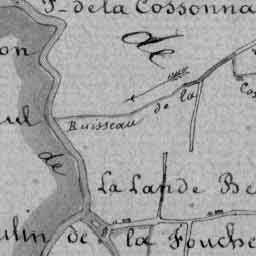 P- de la Cossonna
de
on
Co
de la
Ruisseau
ul
de
La Lande Be
ulin de la Fouche